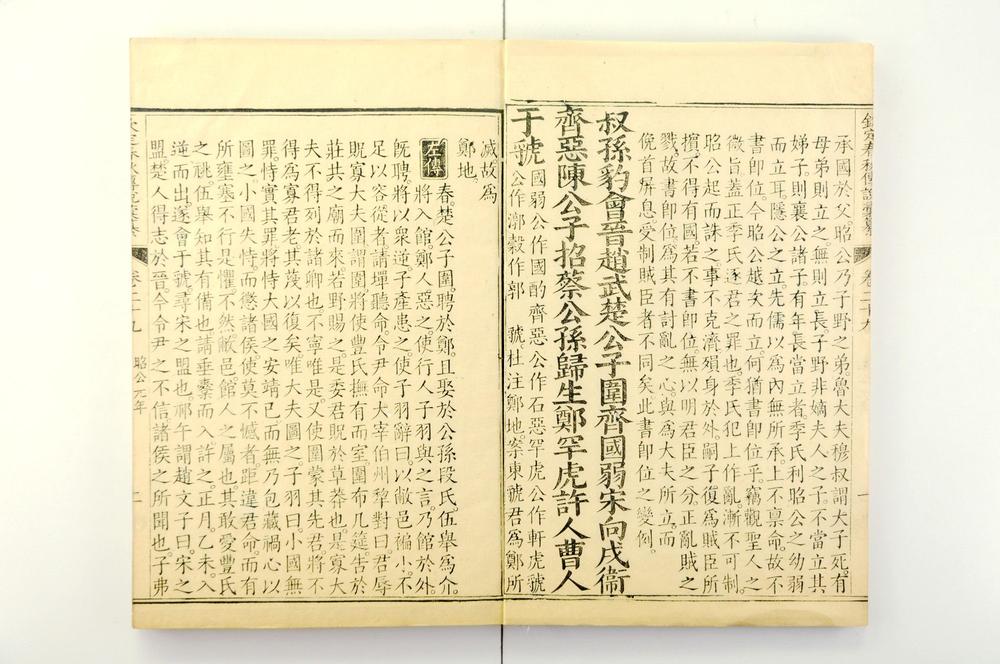 欽定春秋傳說彙纂 卷二十九 一
承國於父昭公乃子野之弟魯大夫穆叔謂大子死有
母弟則立之無則立長子野非嫡夫人之子不當立其
娣子則襄公諸子有年長當立者季氏利昭公之幼弱
而立耳隱公之立先儒以爲内無所承上不稟命故不
書即位今昭公越次而立何猶書即位乎竊觀聖人之
微旨蓋正季氏逐君之罪也季氏犯上作亂漸不可制
昭公起而誅之事不克濟殞身於外嗣子復爲賊臣所
擯不得有國若不書即位無以明君臣之分正亂賊之
戮故書即位爲其有討亂之心與爲大夫所立而
俛首屏息受制賊臣者不同矣此書即位之變例
叔孫豹會晉趙武楚公子圍齊國弱宋向戌衞
齊惡陳公子招蔡公孫歸生鄭罕虎許人曹人
于虢
國弱公作國酌齊惡公作石惡罕虎公作軒虎虢
公作漷穀作郭 虢杜注鄭地案東虢君爲鄭所
滅故爲
鄭地
左傳 春楚公子圍聘於鄭且娶於公孫段氏伍舉爲介
將入館鄭人惡之使行人子羽與之言乃館於外
旣聘將以衆逆子產患之使子羽辭曰以敝邑褊小不
足以容從者請墠聽命令尹命大宰伯州犂對曰君辱
貺寡大夫圍謂圍將使豐氏撫有而室圍布几筵告於
莊共之廟而來若野賜之是委君貺於草莽也是寡大
夫不得列於諸卿也不寧唯是又使圍蒙其先君將不
得爲寡君老其蔑以復矣唯大夫圖之子羽曰小國無
罪恃實其罪將恃大國之安靖已而無乃包藏禍心以
圖之小國失恃而懲諸侯使莫不憾者距違君命而有
所壅塞不行是懼不然敝邑館人之屬也其敢愛豐氏
之祧伍舉知其有備也請垂櫜而入許之正月乙未入
逆而出遂會于虢尋宋之盟也祁午謂趙文子曰宋之
盟楚人得志於晉今令尹之不信諸侯之所聞也子弗
欽定春秋傳說彙纂 卷二十九 昭公元年 二